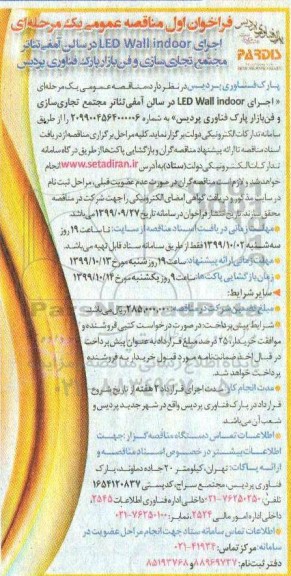 پردیس
PARDIS
فراخوان اول مناقصه عمومی یک مرحله‌ای
اجرای LED Wall indoor در سالن آمفی تئاتر
مجتمع تجاری سازی و فن بازار پارک فناوری پردیس
پارک فناوری پردیس در نظر دارد مناقصه عمومی یک مرحله‌ای
« اجرای LED Wall indoor در سالن آمفی تئاتر مجتمع تجاری‌سازی
و فن‌بازار پارک فناوری پردیس» به شماره ۲۰۹۹۰۰۴۵۶۴۰۰۰۰۰۶ را از طریق
سامانه تدارکات الکترونیکی دولت برگزار نماید. کلیه مراحل برگزاری مناقصه از دریافت
اسناد مناقصه تا ارائه پیشنهاد مناقصه‌گران و بازگشایی پاکت‌ها از طریق درگاه سامانه
تدارکات الکترونیکی دولت (ستاد) به آدرس www.setadiran.ir انجام
خواهد شد و لازم است مناقصه‌گران در صورت عدم عضویت قبلی، مراحل ثبت نام
در سایت مذکور و دریافت گواهی امضای الکترونیکی را جهت شرکت در مناقصه
محقق سازند. تاریخ انتشار فراخوان در سامانه تاریخ ۱۳۹۹/۰۹/۲۷ می‌باشد.
مهلت زمانی دریافت اسناد مناقصه از سایت: تا ساعت ۱۹ روز
سه شنبه ۱۳۹۹/۱۰/۰۲ فقط از طریق سامانه ستاد قابل تهیه می‌باشد.
مهلت زمانی ارائه پیشنهاد: ساعت ۱۹ روز شنبه مورخ ۱۳۹۹/۱۰/۱۳
زمان بازگشایی پاکت‌ها: ساعت ۹ روز یکشنبه مورخ ۱۳۹۹/۱۰/۱۴
سایر شرایط:
مبلغ تضمین شرکت در مناقصه: ۲۸۵,۰۰۰,۰۰۰ ریال می‌باشد.
شرایط پیش پرداخت: در صورت درخواست کتبی فروشنده و
موافقت خریدار، ۲۵ درصد مبلغ قرارداد به عنوان پیش پرداخت
در قبال اخذ ضمانت‌نامه مورد قبول خریدار به فروشنده
پرداخت خواهد شد.
مدت انجام کار: مدت اجرای قرارداد ۳ هفته از تاریخ شروع
قرارداد در پارک فناوری پردیس واقع در شهر جدید پردیس و
شعب آن می‌باشد.
اطلاعات تماس دستگاه مناقصه گزار جهت
اطلاعات بیشتر در خصوص اسناد مناقصه و
ارائه پاکات: تهران، کیلومتر ۲۰ جاده دماوند، پارک
فناوری پردیس، مجتمع سراج، کدپستی ۱۶۵۴۱۲۰۸۳۷
تلفن: ۷۶۲۵۰۲۵۰-۰۲۱ داخلی اداره فناوری اطلاعات ۲۵۴۵،
داخلی اداره امور مالی ۲۵۲۴، نمابر: ۷۶۲۵۰۱۰۰-۰۲۱
اطلاعات تماس سامانه ستاد جهت انجام مراحل عضویت در
سامانه: مرکز تماس: ۴۱۹۳۴-۰۲۱
دفتر ثبت نام: ۸۸۹۶۹۷۳۷ و ۸۵۱۹۳۷۶۸